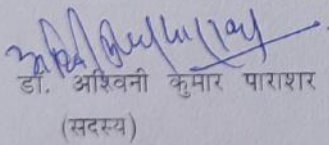 डॉ. अश्विनी कुमार पाराशर
(सदस्य)